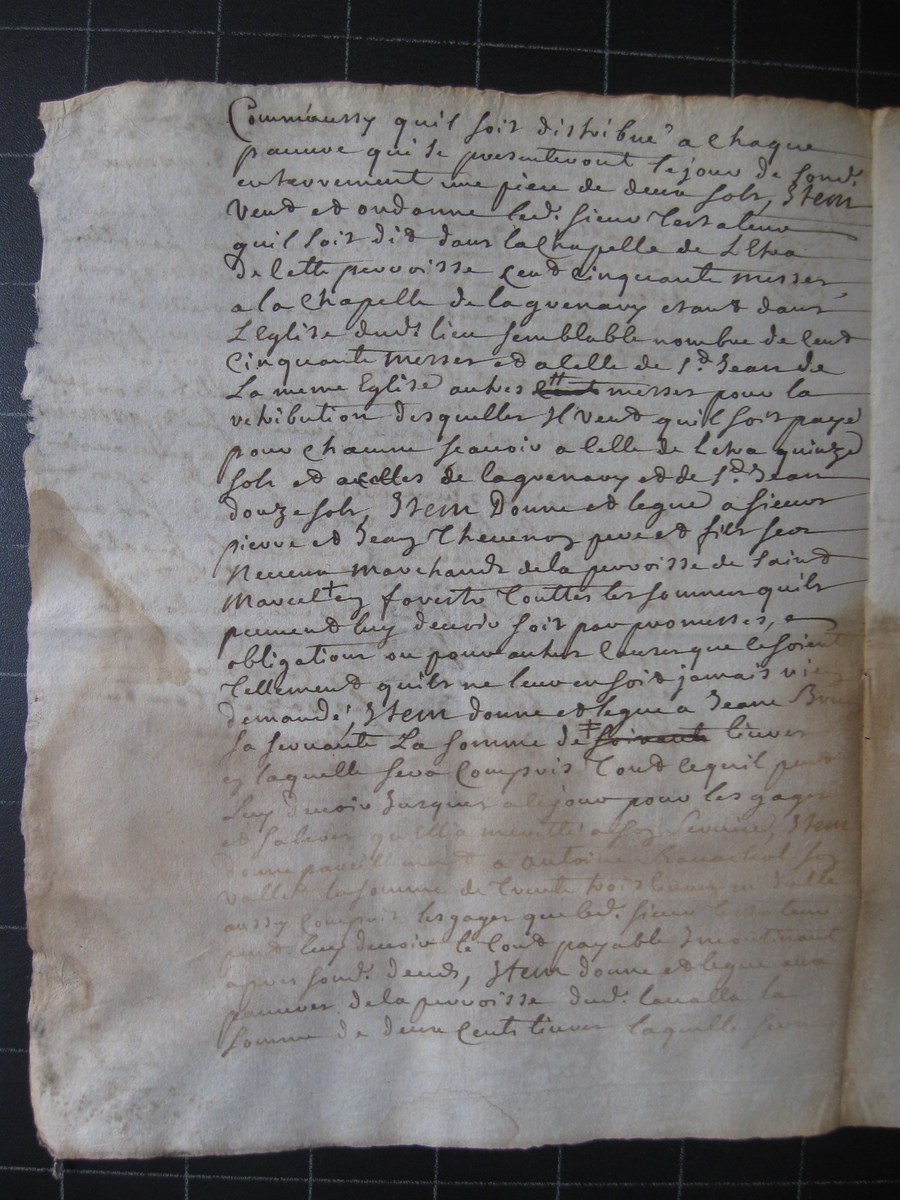 Comm'aussy quil soit distribué a chaque
pauvre qui se presenteront le jour de sond.
enterrement une piece de deux sols, Item
veut et ordonne led. sieur testateur
quil soit dit dans la chapelle de Létra
de cette parroisse cent cinquante messes
a la chapelle de lagrenary etant dans
L'Eglise dud. lieu semblable nombre de cent
cinquante messes et a celle de St. Jean de
La meme Eglise autres cent messes pour la
retribution desquelles Il veut quil soit payé
pour chacune scauoir a celle de Létra quinze
sols et a celles de lagrenary et de St. Jean
douze sols, Item Donne et legue a sieurs
pierre et Jean Thevenon pere et fils ses
Neveux marchands de la parroisse de saint
Marcel+ en forests touttes les sommes quils
peuvent luy devoir soit par promesses,
obligations ou pour autres causes que ce soient
tellement quils ne leur en soit jamais rien
demandé, Item donne et legue a Jeane
sa servante La somme de + soixante livres
en laquelle sera compris tout ce quil peut
Luy devoir Jusques a ce jour pour les gages
et salaires qu'Elle a merité a son service, Item
donne pareillement a Antoine son
vallet la somme de trente trois livres en Icelle
aussy compris les gages que led. sieur testateur
peut luy devoir le tout payable Incontinant
apres sond. deceds, Item donne et legue aux
pauvres de la parroisse dud. lavalla la
somme de deux cents livres laquelle sera